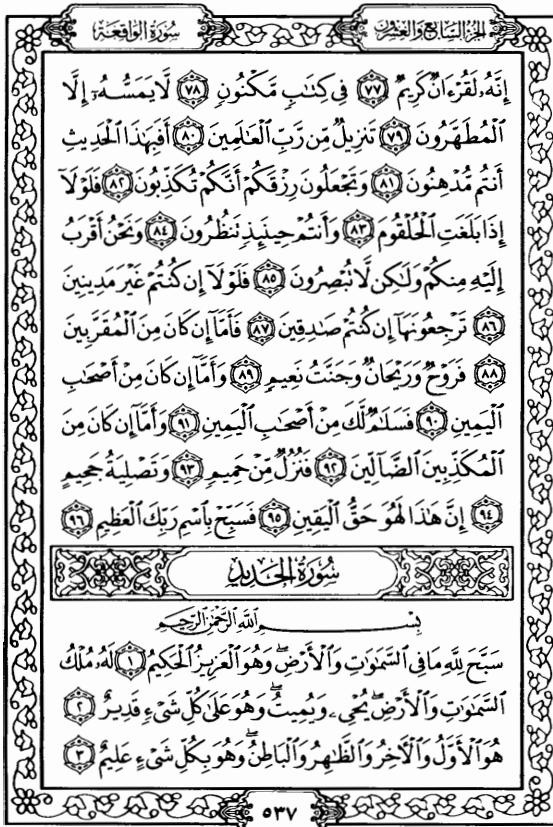 سُورَةُ الوَاقِعَةِ
الجُزْءُ السَّابِعُ وَالعِشْرُونَ
إِنَّهُۥ لَقُرْءَانٌ كَرِيمٌ ٧٧ فِى كِتَٰبٍ مَّكْنُونٍ ٧٨ لَّا يَمَسُّهُۥٓ إِلَّا
ٱلْمُطَهَّرُونَ ٧٩ تَنزِيلٌ مِّن رَّبِّ ٱلْعَٰلَمِينَ ٨٠ أَفَبِهَٰذَا ٱلْحَدِيثِ
أَنتُم مُّدْهِنُونَ ٨١ وَتَجْعَلُونَ رِزْقَكُمْ أَنَّكُمْ تُكَذِّبُونَ ٨٢ فَلَوْلَآ
إِذَا بَلَغَتِ ٱلْحُلْقُومَ ٨٣ وَأَنتُمْ حِينَئِذٍ تَنظُرُونَ ٨٤ وَنَحْنُ أَقْرَبُ
إِلَيْهِ مِنكُمْ وَلَٰكِن لَّا تُبْصِرُونَ ٨٥ فَلَوْلَآ إِن كُنتُمْ غَيْرَ مَدِينِينَ
٨٦ تَرْجِعُونَهَآ إِن كُنتُمْ صَٰدِقِينَ ٨٧ فَأَمَّآ إِن كَانَ مِنَ ٱلْمُقَرَّبِينَ
٨٨ فَرَوْحٌ وَرَيْحَانٌ وَجَنَّتُ نَعِيمٍ ٨٩ وَأَمَّآ إِن كَانَ مِنْ أَصْحَٰبِ
ٱلْيَمِينِ ٩٠ فَسَلَٰمٌ لَّكَ مِنْ أَصْحَٰبِ ٱلْيَمِينِ ٩١ وَأَمَّآ إِن كَانَ مِنَ
ٱلْمُكَذِّبِينَ ٱلضَّآلِّينَ ٩٢ فَنُزُلٌ مِّنْ حَمِيمٍ ٩٣ وَتَصْلِيَةُ جَحِيمٍ
٩٤ إِنَّ هَٰذَا لَهُوَ حَقُّ ٱلْيَقِينِ ٩٥ فَسَبِّحْ بِٱسْمِ رَبِّكَ ٱلْعَظِيمِ ٩٦
سُورَةُ الحَدِيدِ
بِسْمِ ٱللَّهِ ٱلرَّحْمَٰنِ ٱلرَّحِيمِ
سَبَّحَ لِلَّهِ مَا فِى ٱلسَّمَٰوَٰتِ وَٱلْأَرْضِ ۖ وَهُوَ ٱلْعَزِيزُ ٱلْحَكِيمُ ١ لَهُۥ مُلْكُ
ٱلسَّمَٰوَٰتِ وَٱلْأَرْضِ ۖ يُحْىِۦ وَيُمِيتُ ۖ وَهُوَ عَلَىٰ كُلِّ شَىْءٍ قَدِيرٌ ٢
هُوَ ٱلْأَوَّلُ وَٱلْءَاخِرُ وَٱلظَّٰهِرُ وَٱلْبَاطِنُ ۖ وَهُوَ بِكُلِّ شَىْءٍ عَلِيمٌ ٣
٥٣٧